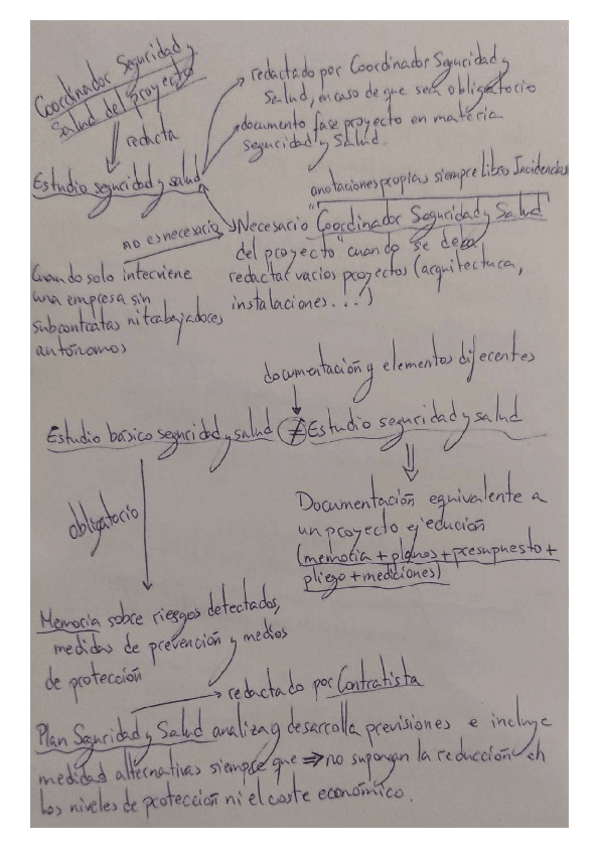 Coordinador Seguridad y
Salud del proyecto
redacta
Estudio seguridad y salud
redactado por Coordinador Seguridad y
Salud, en caso de que sea obligatorio
documento fase proyecto en materia
seguridad y Salud.
anotaciones propias siempre Libro Incidencias
no es necesario
Necesario "Coordinador Seguridad y Salud
del proyecto" cuando se deba
redactar varios proyectos (arquitectura,
instalaciones...)
Cuando solo interviene
una empresa sin
subcontratas ni trabajadores
autónomos
documentación y elementos diferentes
Estudio básico seguridad y salud ≠ Estudio seguridad y salud
obligatorio
Documentación equivalente a
un proyecto ejecución
(memoria + planos + presupuesto +
pliego + mediciones)
Memoria sobre riesgos detectados,
medidas de prevención y medios
de protección
redactado por Contratista
Plan Seguridad y Salud analiza y desarrolla previsiones e incluye
medidad alternativas siempre que ⇒ no supongan la reducción en
los niveles de protección ni el coste económico.